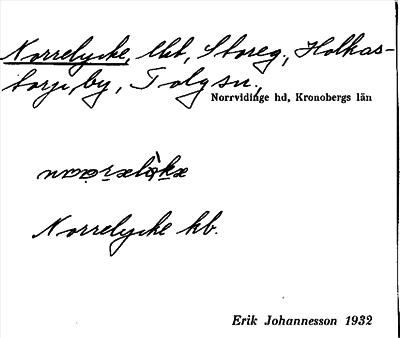 Norrelycke, lht, Storeg., Holkas-
torp, by, Tolg sn,
Norrvidinge hd, Kronobergs län
Norrelycke hb.
Erik Johannesson 1932